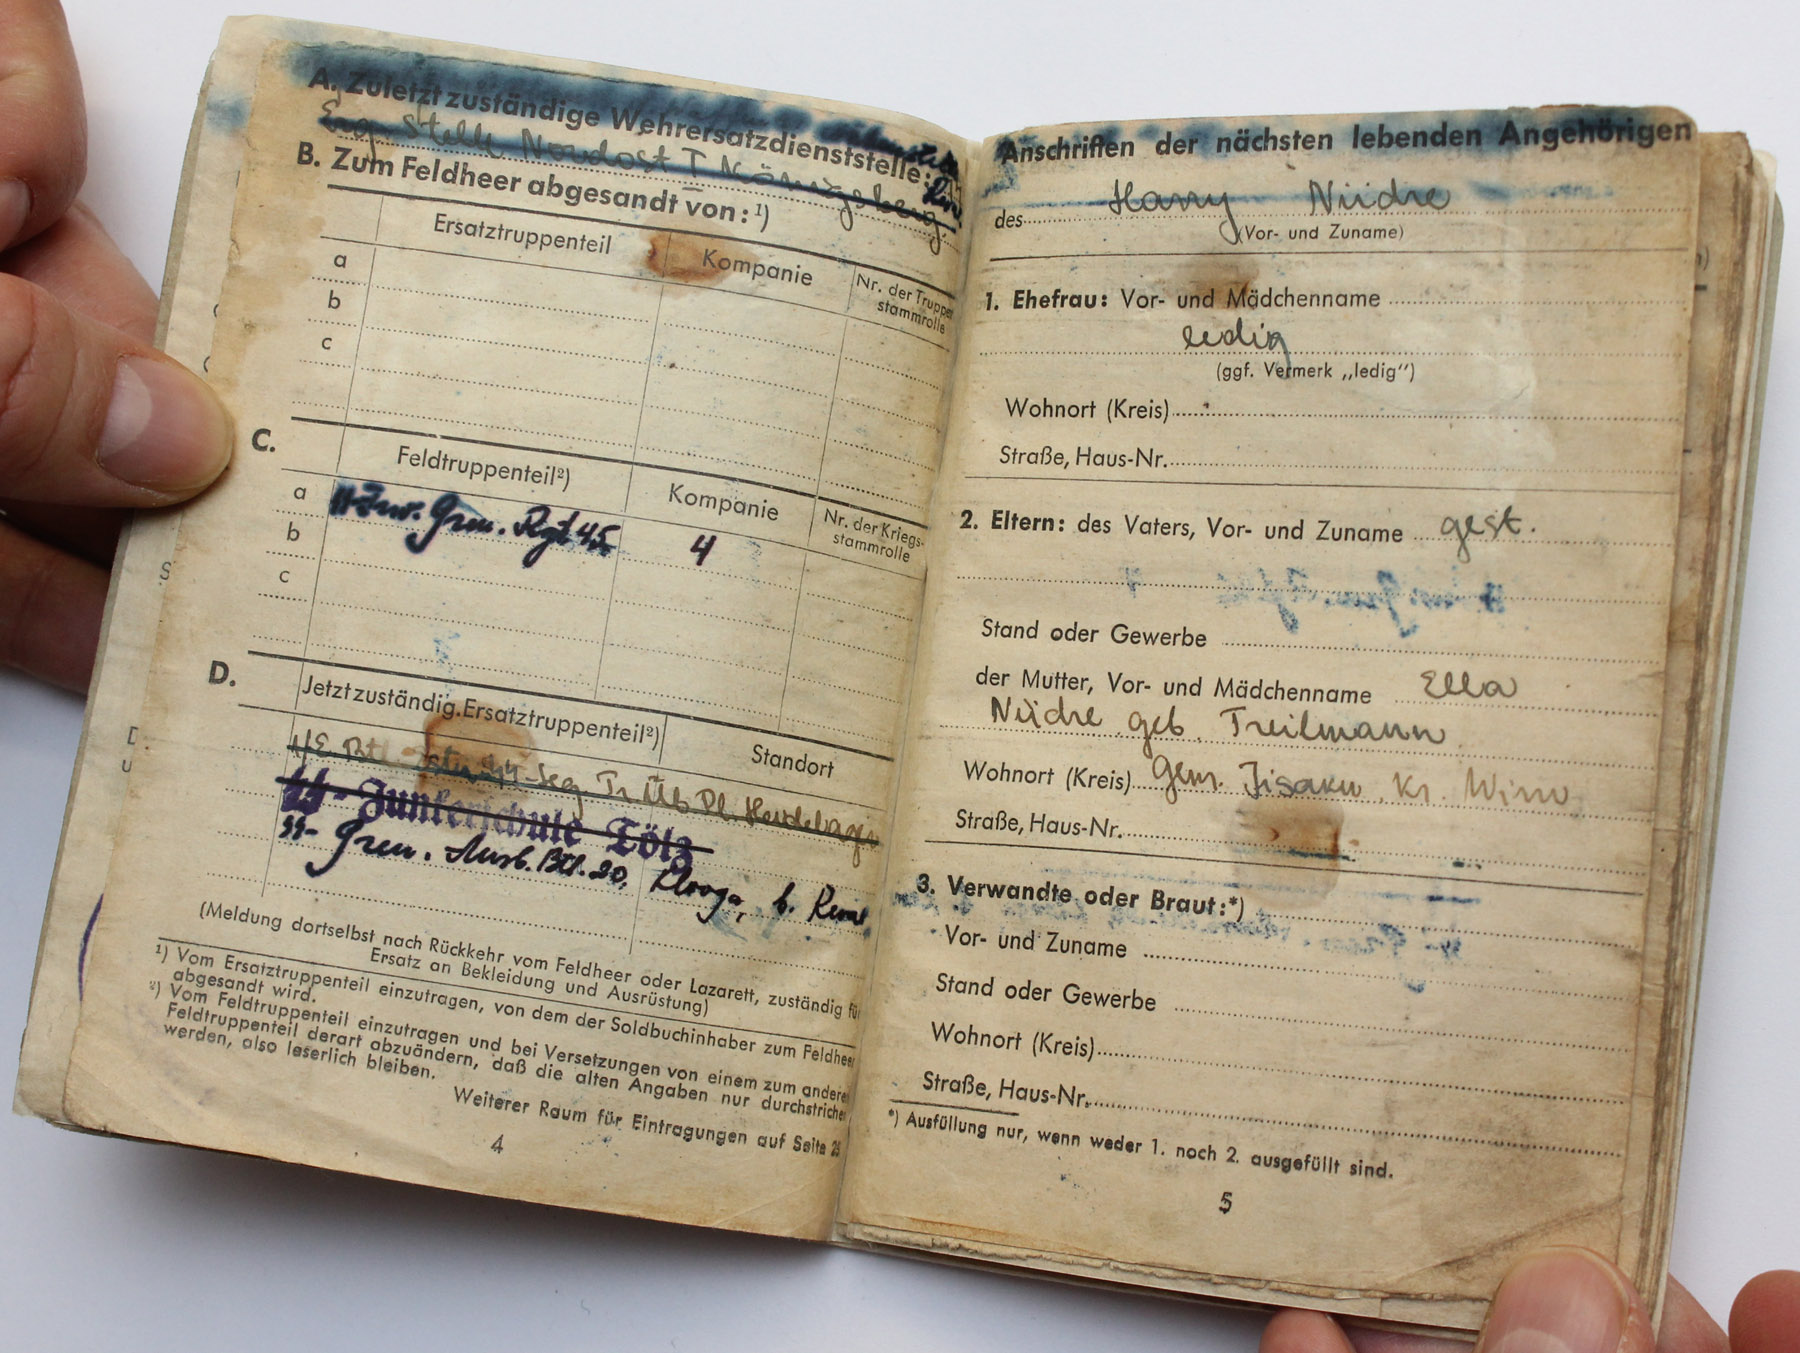 A. Zuletzt zuständige Wehrersatzdienststelle:
Erg. Stelle Nordost I Königsberg
B. Zum Feldheer abgesandt von: ¹)
Ersatztruppenteil Kompanie Nr. der Truppen
stammrolle
a
b
c
C.
Feldtruppenteil²) Kompanie Nr. der Kriegs-
stammrolle
a ᛋᛋ-Frw. Gren. Rgt 45 4
b
c
D.
Jetzt zuständig. Ersatztruppenteil²) Standort
Tr. Üb Pl. Heidelager
ᛋᛋ-Junkerschule Tölz
SS-Gren. Ausb. Btl. 20, Klooga, b. Reval
(Meldung dortselbst nach Rückkehr vom Feldheer oder Lazarett, zuständig für
Ersatz an Bekleidung und Ausrüstung)
¹) Vom Ersatztruppenteil einzutragen, von dem der Soldbuchinhaber zum Feldheer
abgesandt wird.
²) Vom Feldtruppenteil einzutragen und bei Versetzungen von einem zum anderen
Feldtruppenteil derart abzuändern, daß die alten Angaben nur durchstrichen
werden, also leserlich bleiben.
Weiterer Raum für Eintragungen auf Seite
4
Anschriften der nächsten lebenden Angehörigen
des Harry Nüdre
(Vor- und Zuname)
1. Ehefrau: Vor- und Mädchenname
ledig
(ggf. Vermerk „ledig")
Wohnort (Kreis)
Straße, Haus-Nr.
2. Eltern: des Vaters, Vor- und Zuname gest.
Stand oder Gewerbe
der Mutter, Vor- und Mädchenname Ella
Nüdre geb. Treilmann
Wohnort (Kreis) Gem. Jisaku Kr. Wirw
Straße, Haus-Nr.
3. Verwandte oder Braut:*)
Vor- und Zuname
Stand oder Gewerbe
Wohnort (Kreis)
Straße, Haus-Nr.
*) Ausfüllung nur, wenn weder 1. noch 2. ausgefüllt sind.
5